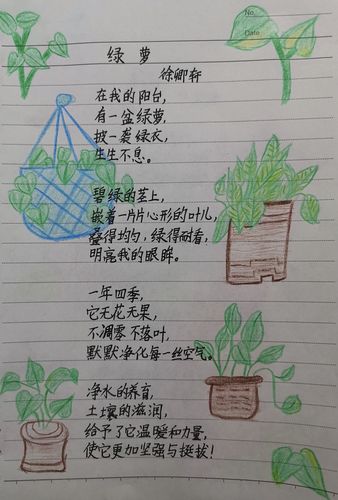 No.
Date
绿萝
徐卿轩
在我的阳台,
有一盆绿萝,
披一袭绿衣,
生生不息。
碧绿的茎上,
嵌着一片片心形的叶儿,
叠得均匀,绿得耐看,
明亮我的眼眸。
一年四季,
它无花无果,
不凋零不落叶,
默默净化每一丝空气。
净水的养育,
土壤的滋润,
给予了它温暖和力量,
使它更加坚强与挺拔!